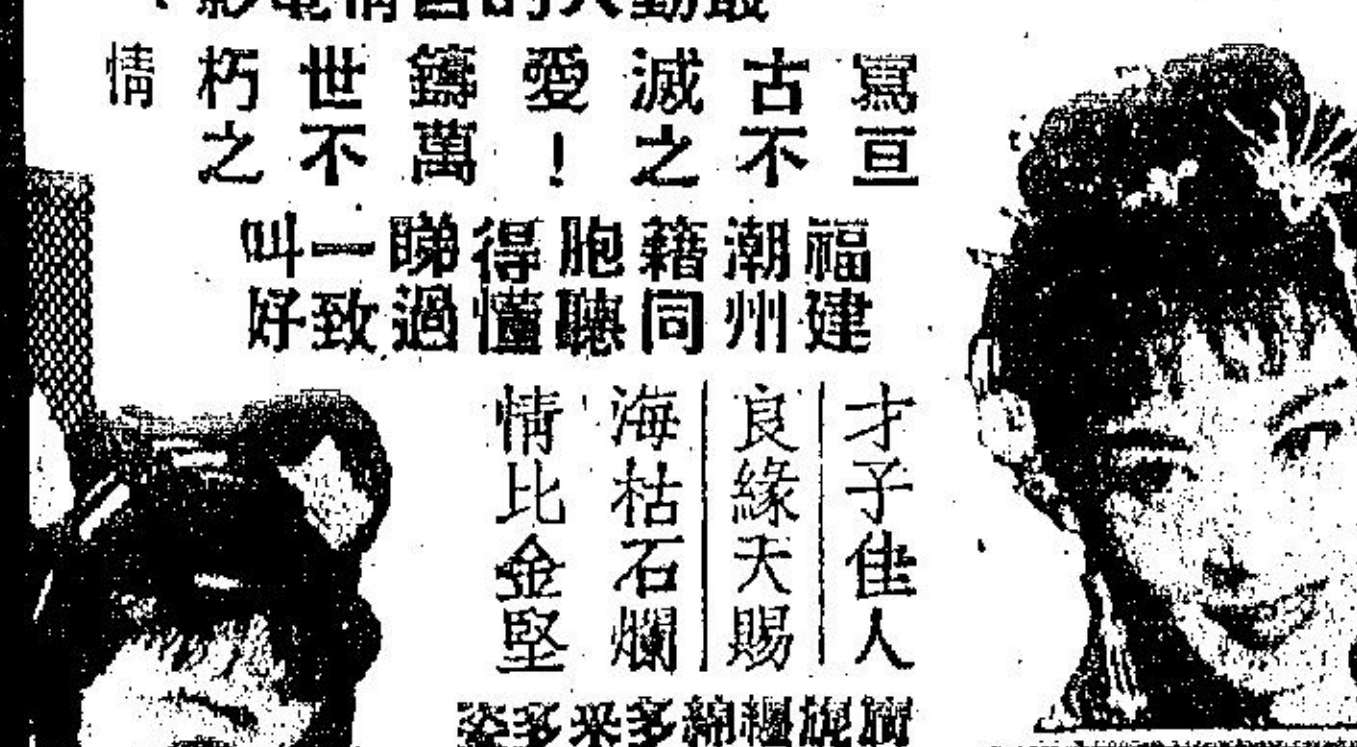 最動人的言情電影
寫亘古不滅之愛！鑄萬世不朽之情
福建潮州藉同胞聽得懂睇過一致叫好
才子佳人
良緣天賜
海枯石爛
情比金堅
旖旎纏綿多采多姿